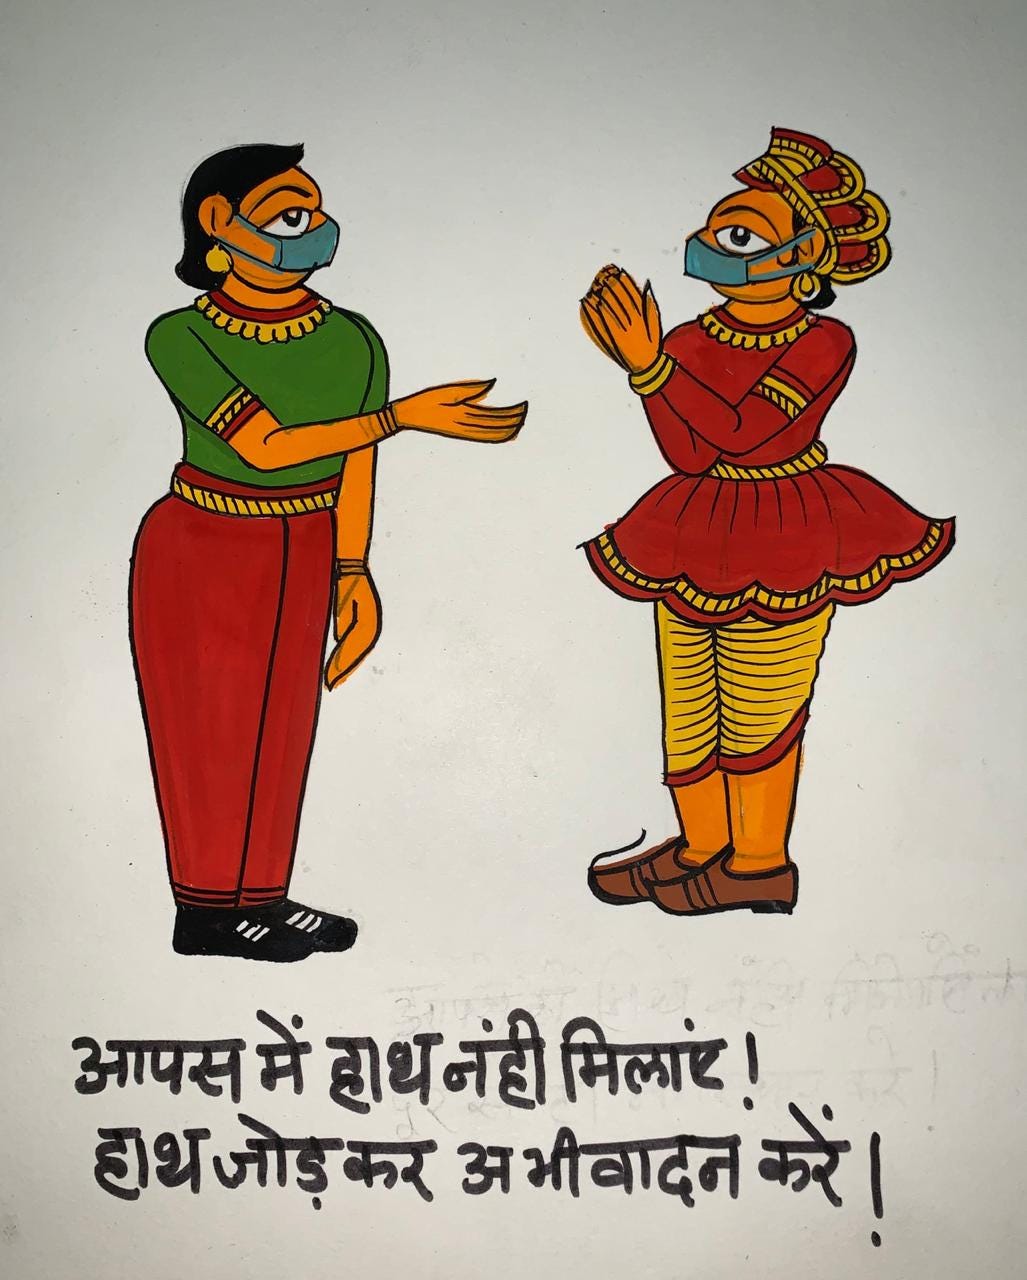 आपस में हाथ नंही मिलाएं!
हाथ जोड़ कर अभीवादन करें!